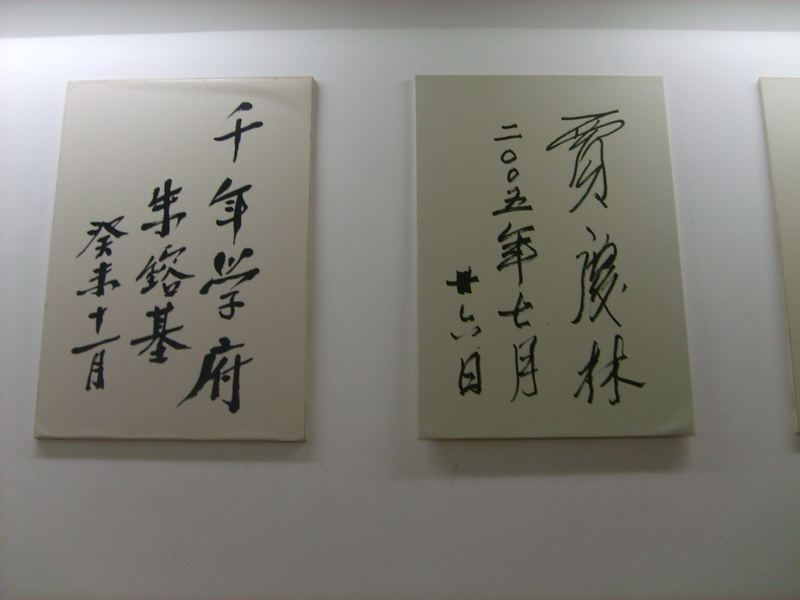 千年学府
朱鎔基
癸未十一月
賈慶林
二〇〇五年七月
廿六日